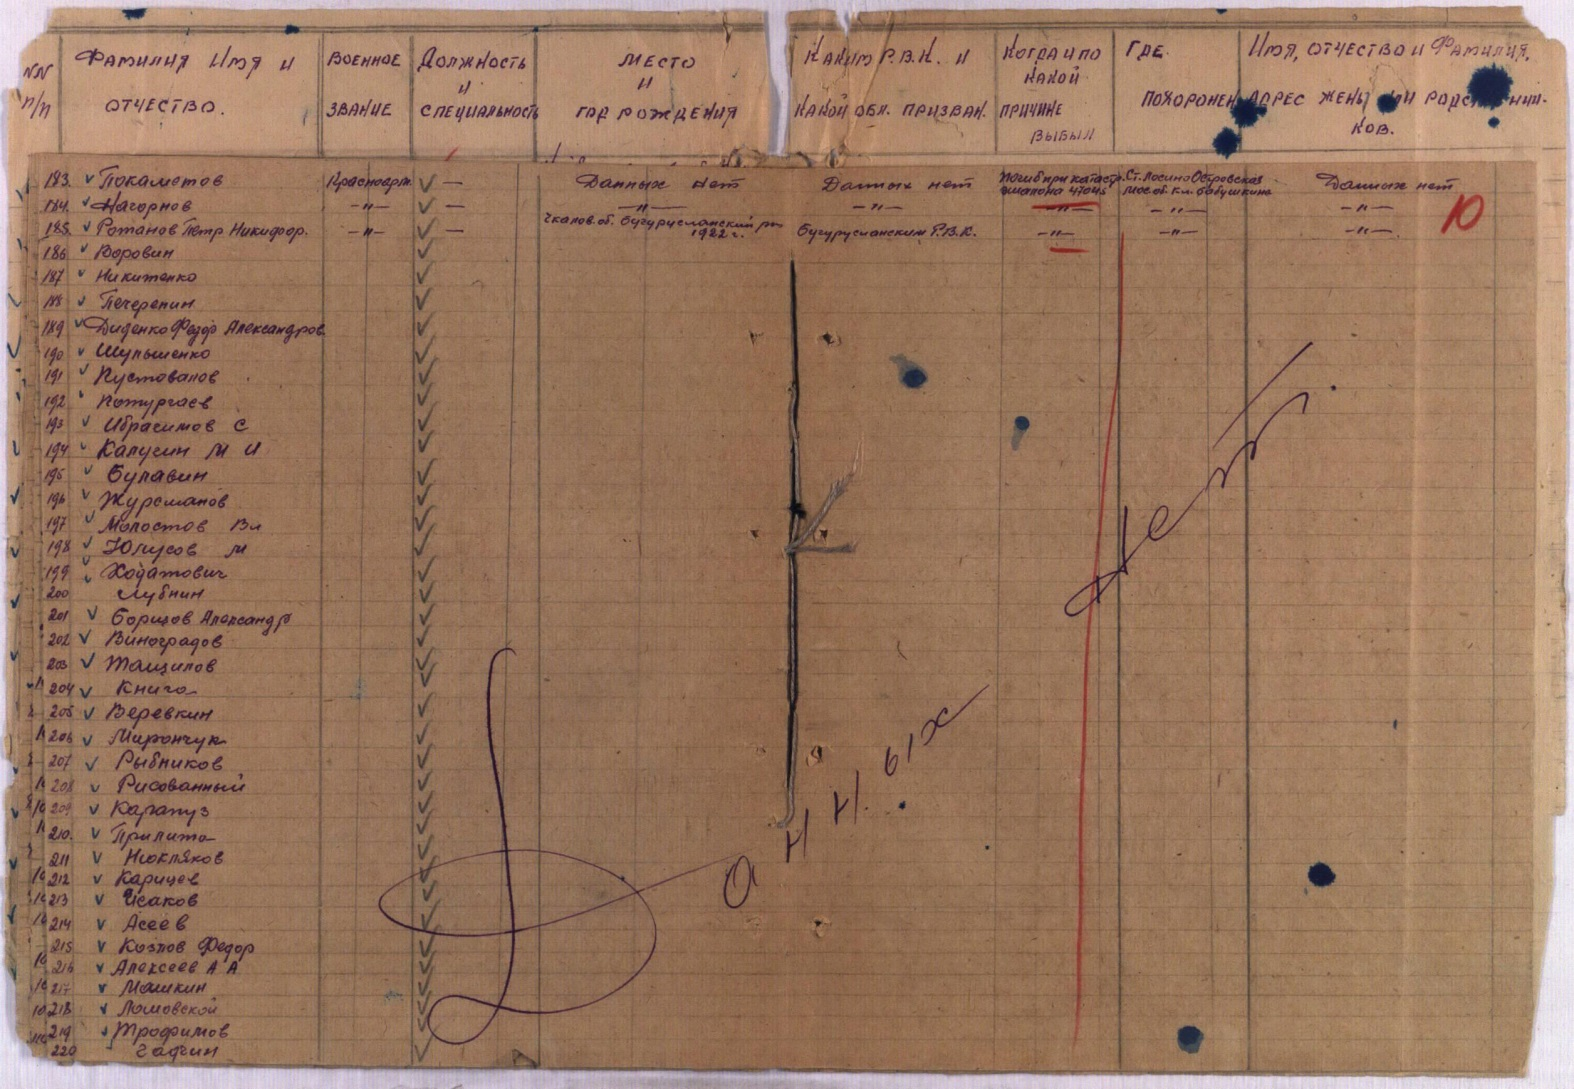 NN п/п ФАМИЛИЯ ИМЯ И ОТЧЕСТВО. ВОЕННОЕ ЗВАНИЕ ДОЛЖНОСТЬ И СПЕЦИАЛЬНОСТЬ МЕСТО И ГОД РОЖДЕНИЯ КАКИМ Р.В.К. И КАКОЙ ОБЛ. ПРИЗВАН. КОГДА И ПО КАКОЙ ПРИЧИНЕ ВЫБЫЛ ГДЕ ПОХОРОНЕН ИМЯ, ОТЧЕСТВО И ФАМИЛИЯ, АДРЕС ЖЕНЫ ИЛИ РОДСТВЕННИКОВ.
183. Покаметов Красноарм. — Данных нет Данных нет Погиб при катастр. эшалона 47045 Ст. Лосино Островская мос. об. г. Бабушкине Данных нет
184. Нагорнов —"— — —"— —"— —"— —"— —"— 10
185. Ротанов Петр Никифор. —"— — Чкалов. об. Бугурусланский рн 1922 г. Бугурусланским Р.В.К. —"— —"— —"—
186 Воровин
187 Никитенко
188 Печерепин
189 Диденко Федор Александров
190 Шульшенко
191 Пустовалов
192 Котургаев
193 Ибрагимов С
194 Калугин М И
195 Булавин
196 Журсманов
197 Молостов Вл
198 Юнусов М
199 Ходатович
200 Лубнин
201 Борщов Александр
202 Виноградов
203 Тащилов
204 Книга
205 Веревкин
206 Мирончук
207 Рыбников
208 Рисованный
209 Карапуз
210. Прилипа
211 Нюкляков
212 Карицев
213 Исаков
214 Асеев
215 Козлов Федор
216 Алексеев А А
217 Машкин
218 Ломовской
219 Трофимов
220 Гафин
Данных нет